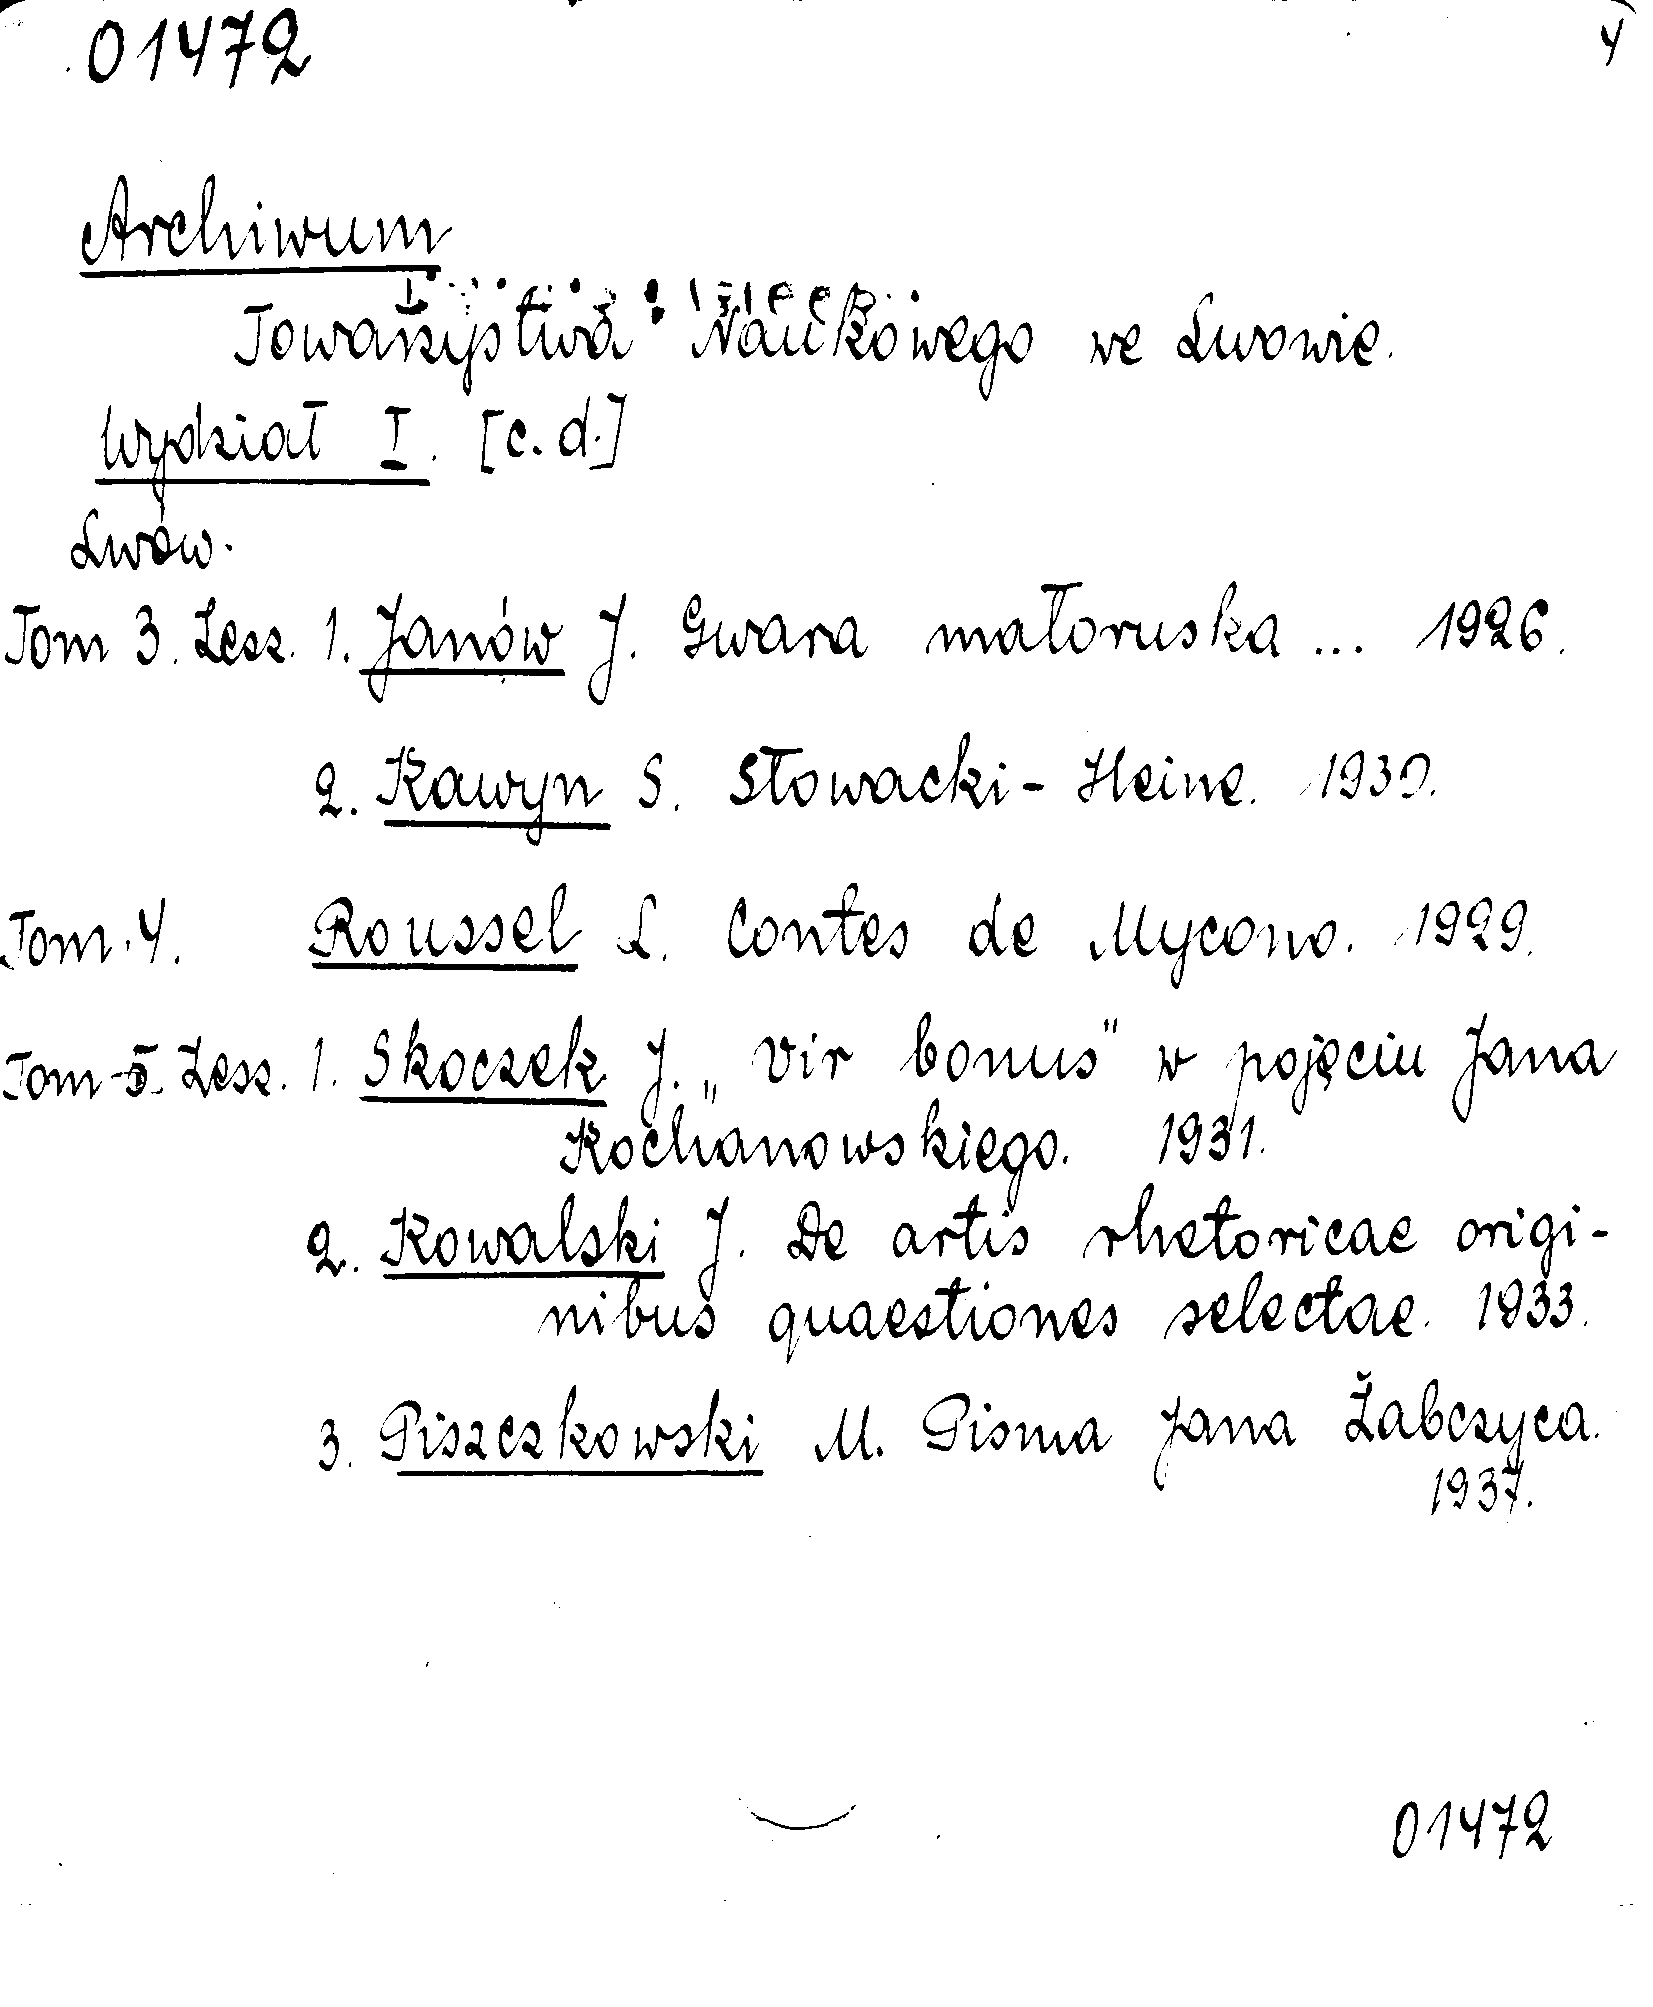 01472
4
Archiwum
Towarzystwa Naukowego we Lwowie.
Wydział I. [c. d.]
Lwów.
Tom 3. Zesz. 1. Janów J. Gwara małoruska ... 1926.
2. Kawyn S. Słowacki - Heine. 1930.
Tom 4. Roussel L. Contes de Mycono. 1929.
Tom 5. Zesz. 1. Skoczek J. „Vir bonus" w pojęciu Jana
Kochanowskiego. 1931.
2. Kowalski J. De artis rhetoricae origi-
nibus quaestiones selectae. 1933.
3. Piszczkowski M. Pisma Jana Żabczyca.
1937.
01472